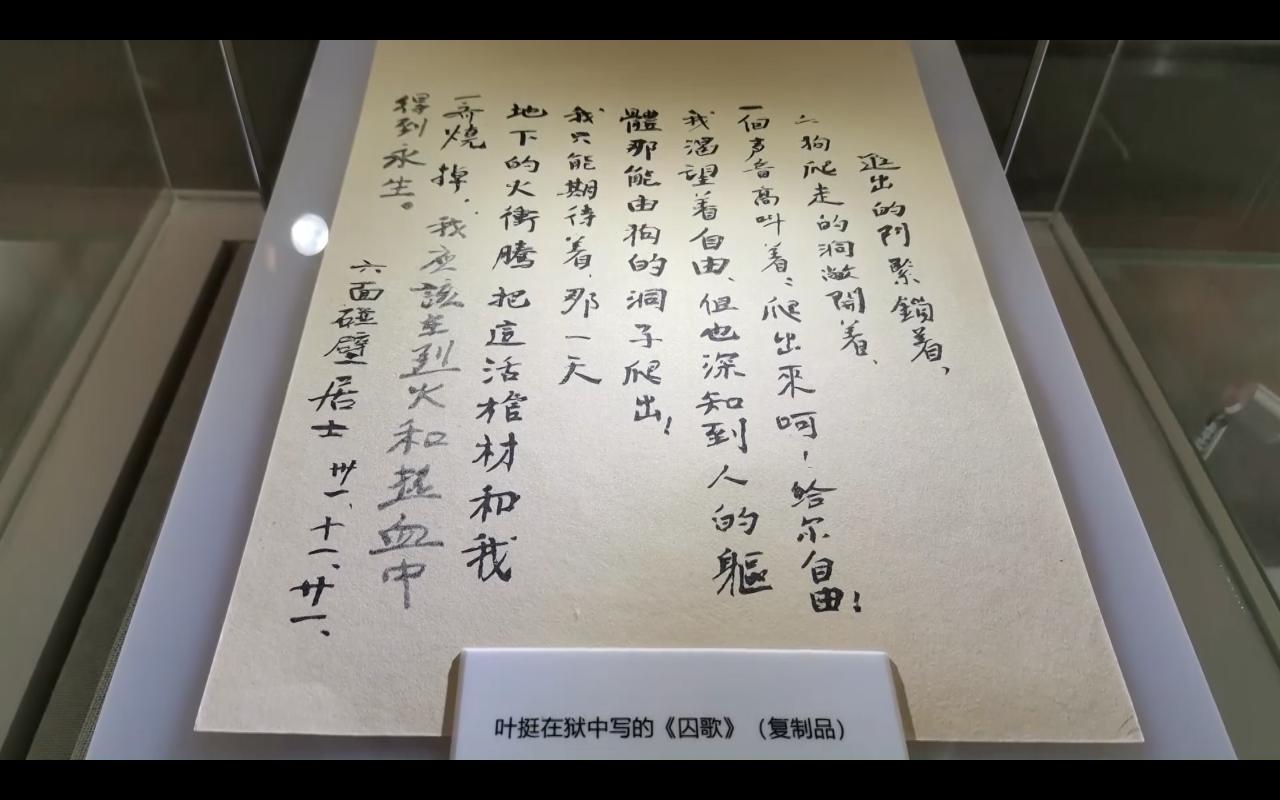 出的門緊鎖着，
狗爬走的洞敞開着、
一個声音高叫着：爬出來呵！給尔自由！
我渴望着自由、但也深知到人的軀
體那能由狗的洞子爬出！
我只能期待着、那一天
地下的火衝騰把這活棺材和我
一齐燒掉，我应該在烈火和热血中
得到永生。
六面碰壁居士 卅一、十一、廿一、
叶挺在狱中写的《囚歌》（复制品）